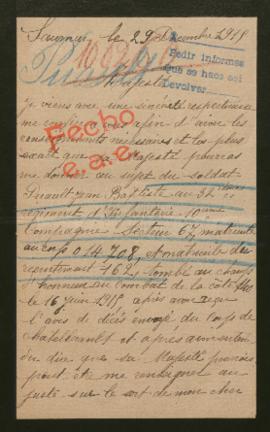 Saumur, le 29 Décembre 1915
Pedir informes
que se hace así
Devolver
Majesté
je viens avec une sincérité respectueuse
me confier à vous afin d'avoir les
renseignements nécessaires et les plus
exacts que sa Majesté pourras
me donner au sujet du soldat
Fecho
Jean Baptiste au 32 ième
régiment d'Infanterie 10 ième
Compagnie Secteur 67, matricule
au corps 014708, et matricule de
recrutement 162, tombé au champs
d'honneur au combat de la côte
le 16 juin 1915 après avoir reçu
l'avis de décès envoyé du corps de
chatellerault et après avoir entendu
dire que sa Majesté pourrais
peut être me renseigner au
juste sur le sort de mon cher